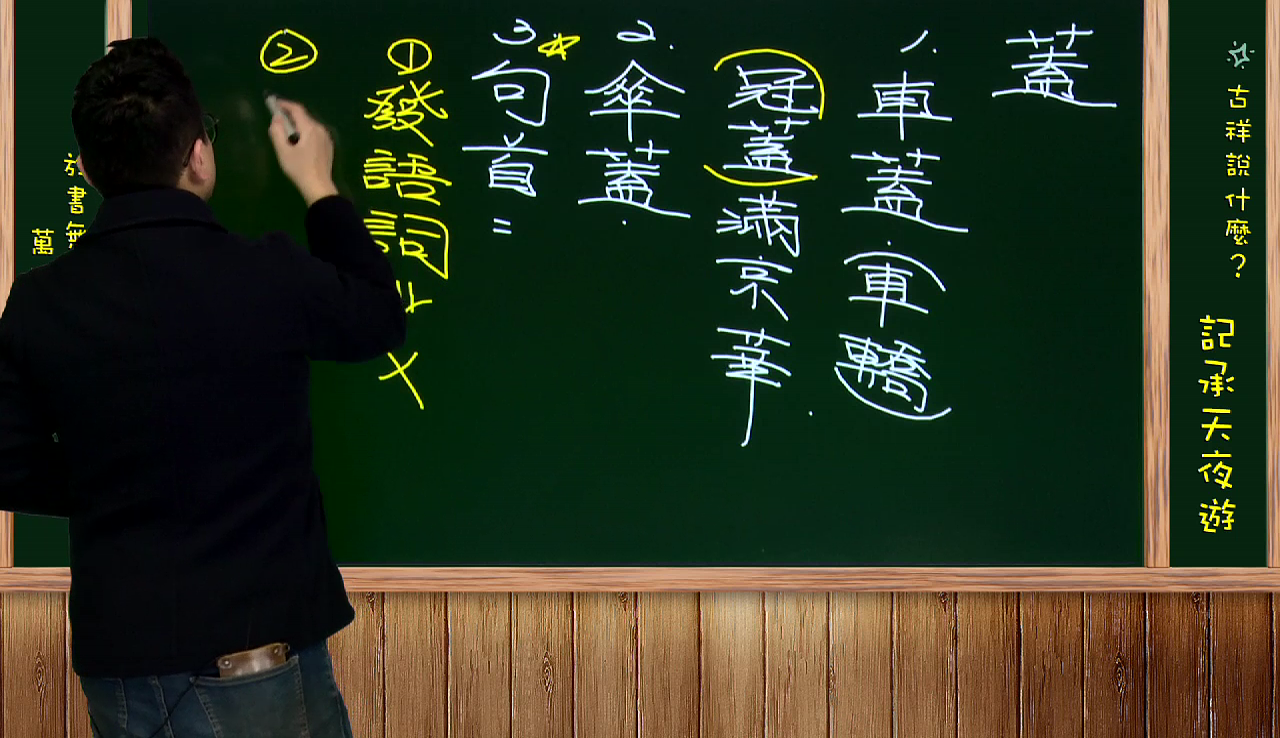 古祥說什麼?
記承天夜遊
蓋
1. 車蓋(車轎)
冠蓋滿京華
2. 傘蓋
3 句首=
① 發語詞
②
萬